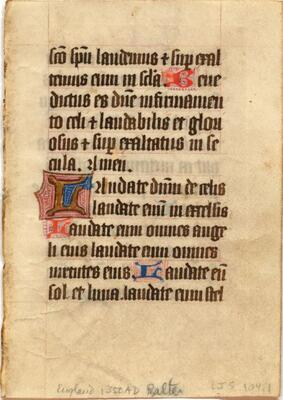 scō spū laudemus ⁊ sup exal
temus eum in scła. Bene
dictus es dn̄e in firmamen
to celi ⁊ laudabilis et glori
osus ⁊ sup exaltatus in se
cula. Amen.
Laudate dnm de celis
laudate eum in excelsis
Laudate eum omnes ange
li eius laudate eum omnes
uirtutes eius. Laudate eū
sol et luna. laudate eum stel
England 1350 AD Psalter LJS 104.1